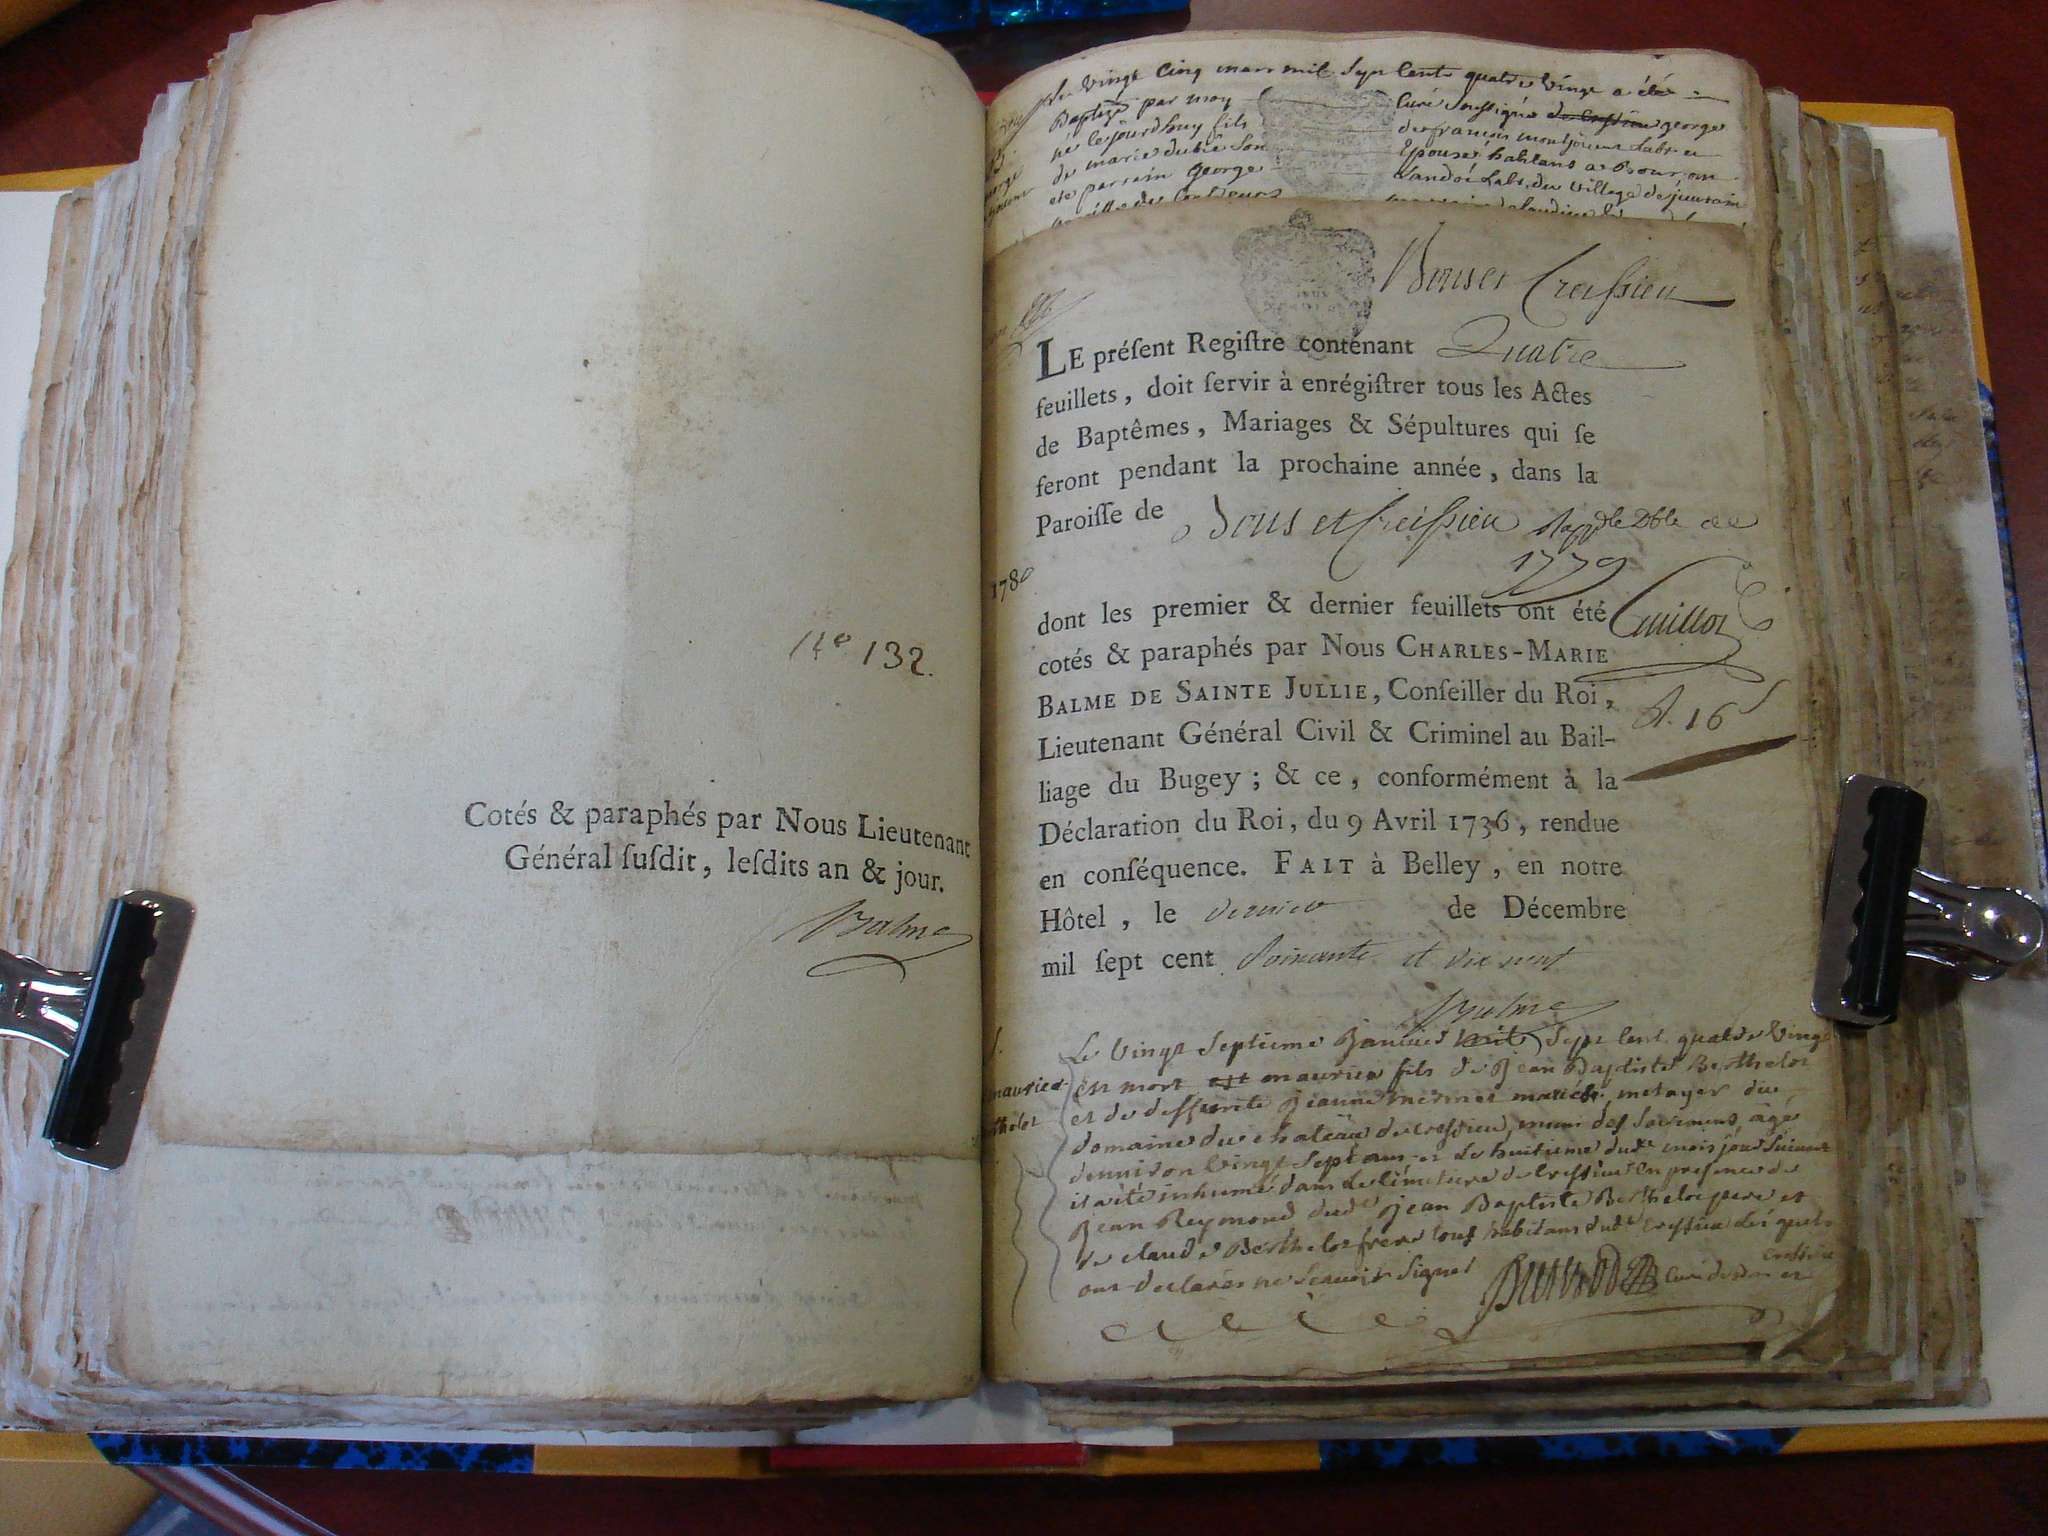 No 132.
Cotés & paraphés par Nous Lieutenant
Général ſuſdit, leſdits an & jour.
Balme
Le vingt cinq mars mil sept cents quatre vingt a été
Baptizé par moy curé soussigné de Cressieu george
né le jourdhuy fils de françois montjoueut labr et
de marie dubie son Epouse habitans a
ete parrain George Landoé Labr. du village de
Bons et Creissieu
LE préſent Regiſtre contenant Quatre
feuillets, doit ſervir à enrégiſtrer tous les Actes
de Baptêmes, Mariages & Sépultures qui ſe
feront pendant la prochaine année, dans la
Paroiſſe de Bons et Creissieu
1779
1780
dont les premier & dernier feuillets ont été
cotés & paraphés par Nous CHARLES-MARIE
BALME DE SAINTE JULLIE, Conſeiller du Roi,
Lieutenant Général Civil & Criminel au Bail-
liage du Bugey ; & ce, conformément à la
Déclaration du Roi, du 9 Avril 1736, rendue
en conſéquence. FAIT à Belley, en notre
Hôtel, le dernier de Décembre
mil ſept cent soixante et dix neuf
Balme
Guillot
16 s
maurice
Berthelot
Le vingt septieme Janvier mil sept cent quatre vingt
est mort est maurice fils de Jean Baptiste Berthelot
et de deffunte Jeanne mermet mariés, metayer du
domaine du chateau de cressieu, muni des sacremens, agé
denviron vingt sept ans et le huitieme dudt mois jour suivant
il a été inhumé dans le cimetiere de Cressieu en presence de
Jean Reymond dudt Jean Baptiste Berthelot pere et
de claude Berthelot frere tous habitans dudt cressieu lesquels
ont declarés ne scavoir signer
curé de bons et
cressieu